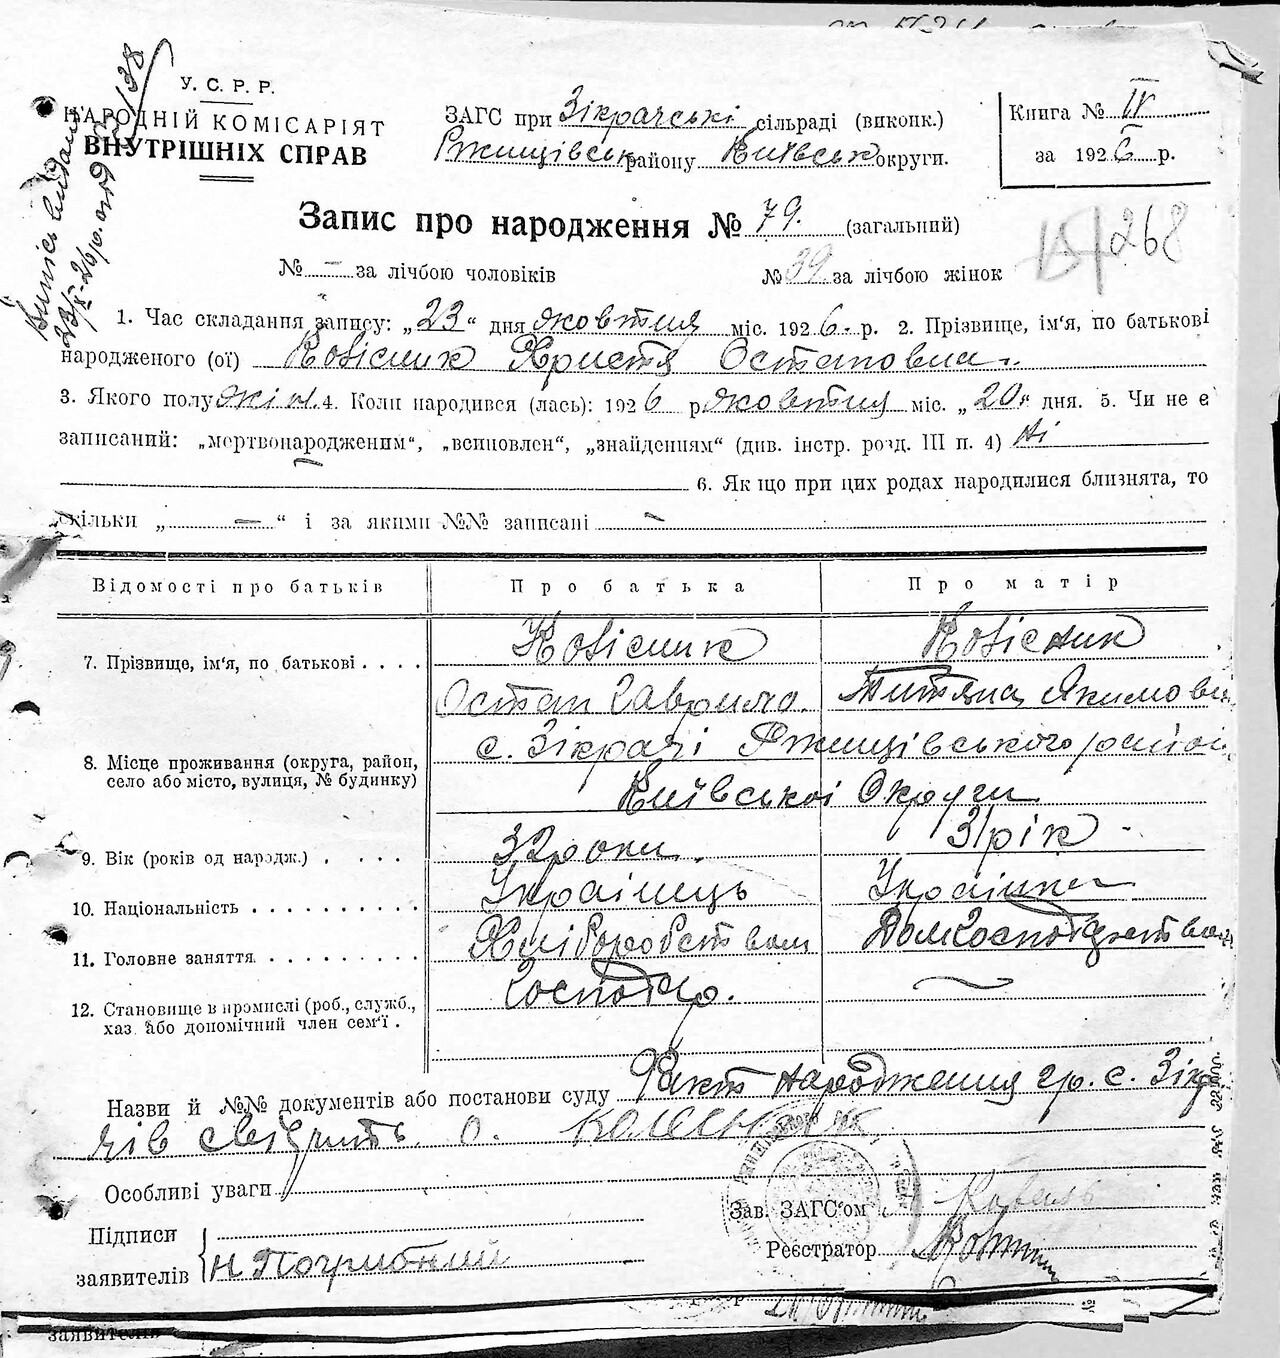 У. С. Р. Р.
НАРОДНІЙ КОМІСАРІЯТ
ВНУТРІШНІХ СПРАВ
ЗАГС при Зікрачські сільраді (виконк.)
Ржищівськ району Київськ округи.
Книга № IV
за 1926 р.
Запис про народження № 79. (загальний)
268
№ — за лічбою чоловіків № 39 за лічбою жінок
1. Час складання запису: „23“ дня жовтня міс. 1926. р. 2. Прізвище, ім'я, по батькові
народженого (ої) Ковісник Христя Остаповна
3. Якого полу жін. 4. Коли народився (лась): 1926 р жовтня міс. „20“ дня. 5. Чи не є
записаний: „мертвонародженим“, „всиновлен“, „знайденням“ (див. інстр. розд. III п. 4) Ні
6. Якщо при цих родах народилися близнята, то
скільки „ — “ і за якими №№ записані —
Відомості про батьків Про батька Про матір
7. Прізвище, ім'я, по батькові . . . . Ковісник Ковісник
Остап Гаврило. Титяна Якимовна
8. Місце проживання (округа, район, с. Зікрачі Ржищівського район
село або місто, вулиця, № будинку) Київської Округи
9. Вік (років од народж.) . . . . 32 роки. 31 рік
10. Національність . . . . . . . . . . Українець Українка
11. Головне заняття . . . . . . . . . Хліборобством Домгосподрством
12. Становище в промислі (роб., служб., Господар. ~
хаз. або допомічний член сем'ї .
Назви й №№ документів або постанови суду Факт народження гр. с. Зікр
чів свідчить о.
Особливі уваги
Зав. ЗАГС'ом
Підписи
заявителів Н Погрибний
Реєстратор
заявителів